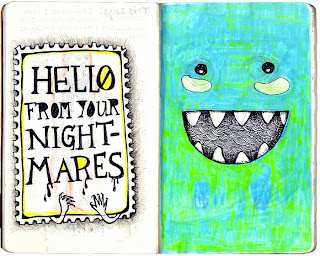 HELLO
FROM YOUR
NIGHT-
MARES